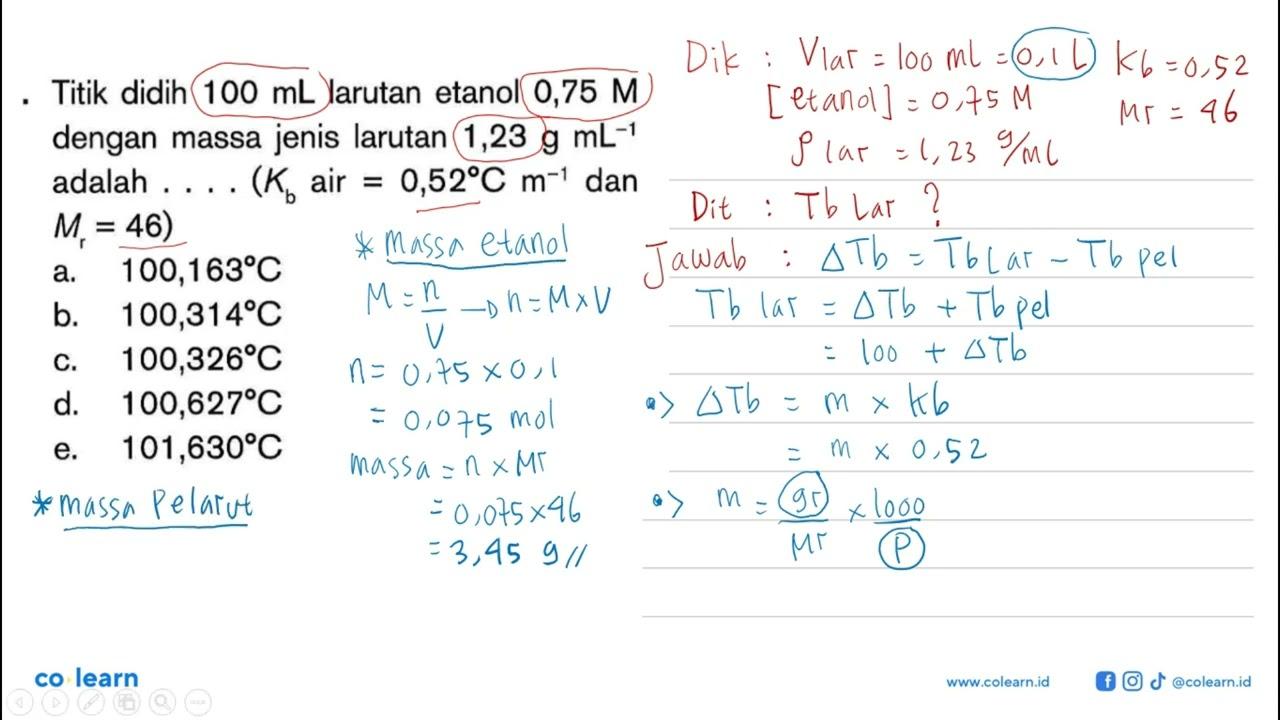 . Titik didih 100 mL larutan etanol 0,75 M
dengan massa jenis larutan 1,23 g mL⁻¹
adalah . . . . (K_b air = 0,52°C m⁻¹ dan
M_r = 46)
a. 100,163°C
b. 100,314°C
c. 100,326°C
d. 100,627°C
e. 101,630°C
* massa Pelarut
* massa etanol
M = n/V → n = M × V
n = 0,75 × 0,1
= 0,075 mol
massa = n × Mr
= 0,075 × 46
= 3,45 g //
Dik : Vlar = 100 ml = 0,1 L Kb = 0,52
[etanol] = 0,75 M Mr = 46
ρ lar = 1,23 g/ml
Dit : Tb Lar ?
Jawab : ΔTb = Tb Lar - Tb pel
Tb lar = ΔTb + Tb pel
= 100 + ΔTb
•> ΔTb = m × kb
= m × 0,52
•> m = gr/Mr × 1000/P
co learn
www.colearn.id @colearn.id